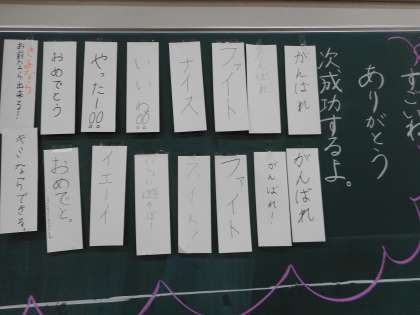 すごいね
ありがとう
次成功するよ。
がんばれ
がんばれ
ファイト
ナイス
いいね
やったー!!
おめでとう
きみなら
お前なら出来る!
がんばれ
がんばれ!
ファイト
ファイト!
イエーイ
おめでと。
キミならできる。